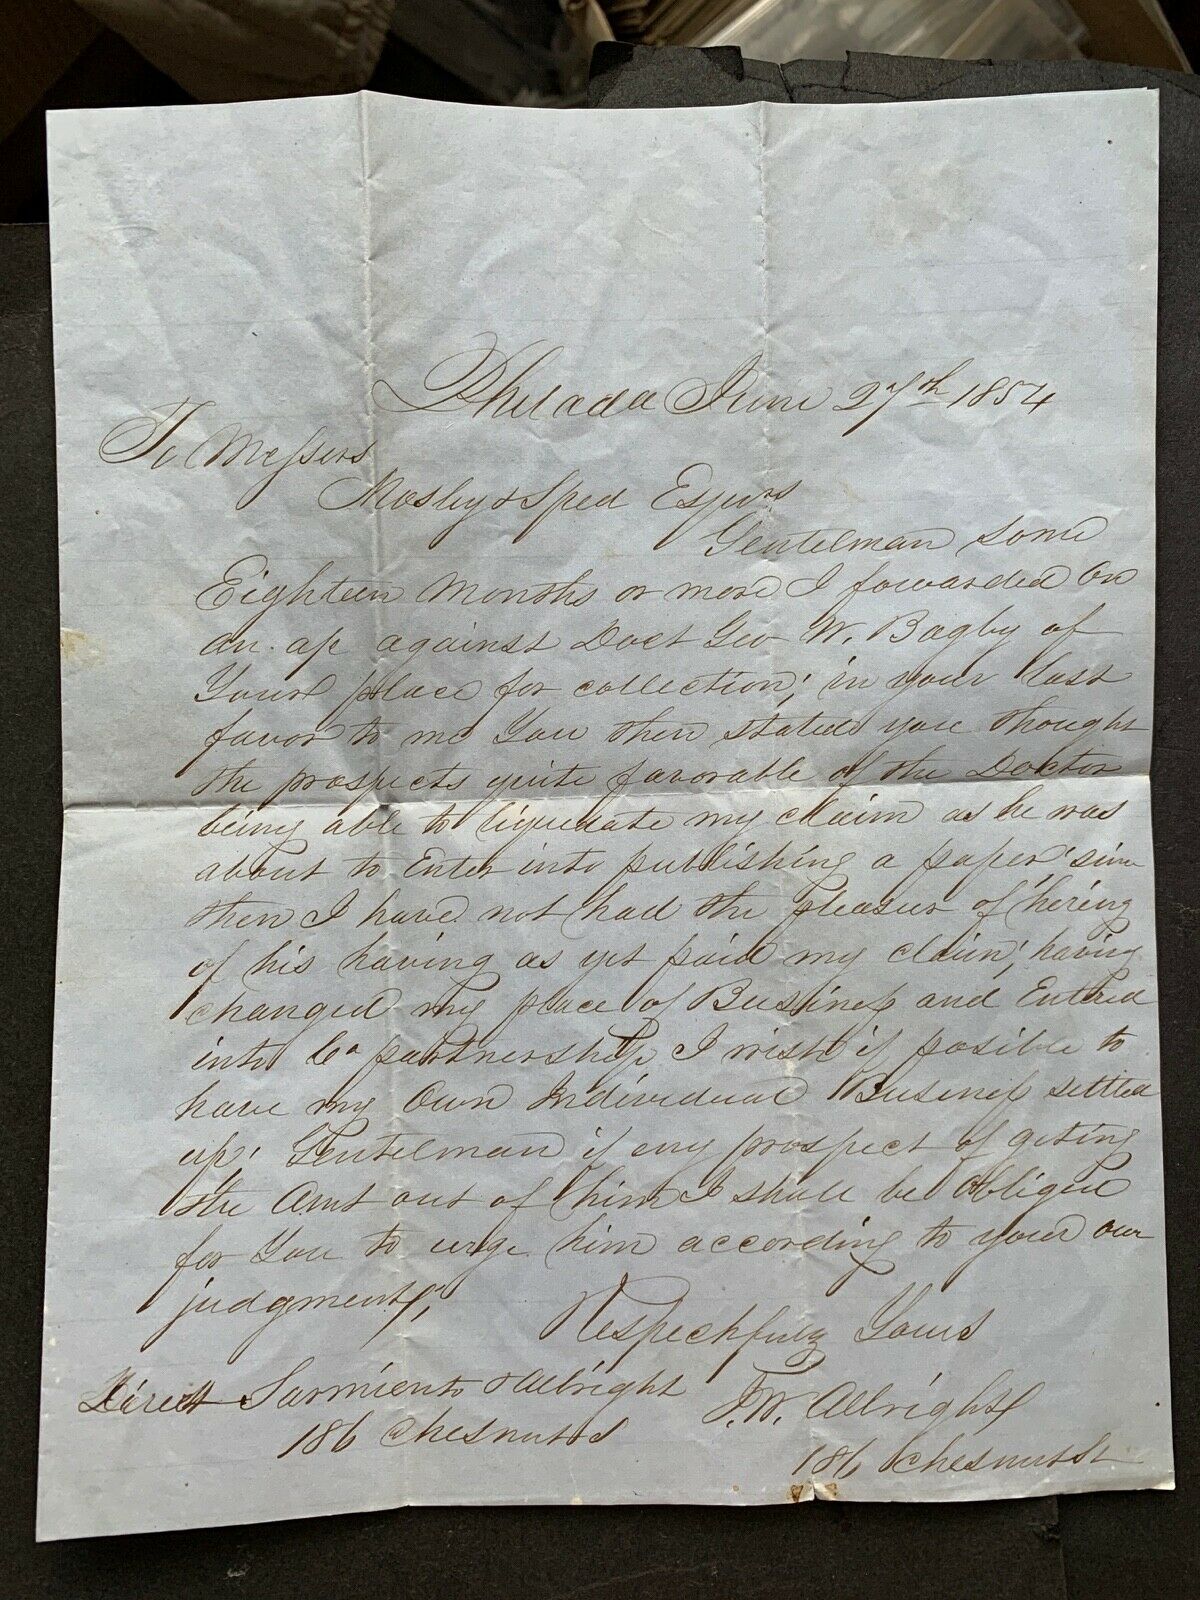 Philada June 27th 1854
To Messers
Mosby & Sped Esqurs
Gentelman some
Eighteen Months or more I forwarded on
an ap against Doct Geo W. Bagby of
Your place for collection; in your last
favor to me You then stated you thought
the prospects quite favorable of the Doctor
being able to liquidate my claim as he was
about to Enter into publishing a paper' since
then I have not had the pleasur of hering
of his having as yet paid my claim; having
changed my place of Business and Entred
into Co partnership, I wish if posible to
have my Own Individual Business settled
up! Gentelman if any prospect of geting
the Amt out of him I shall be obliged
for You to urge him according to your own
judgment,
Respectfuly Yours
Direct Sarmiento & Albright
F.W. Albright
186 Chesnut St
186 Chesnut St